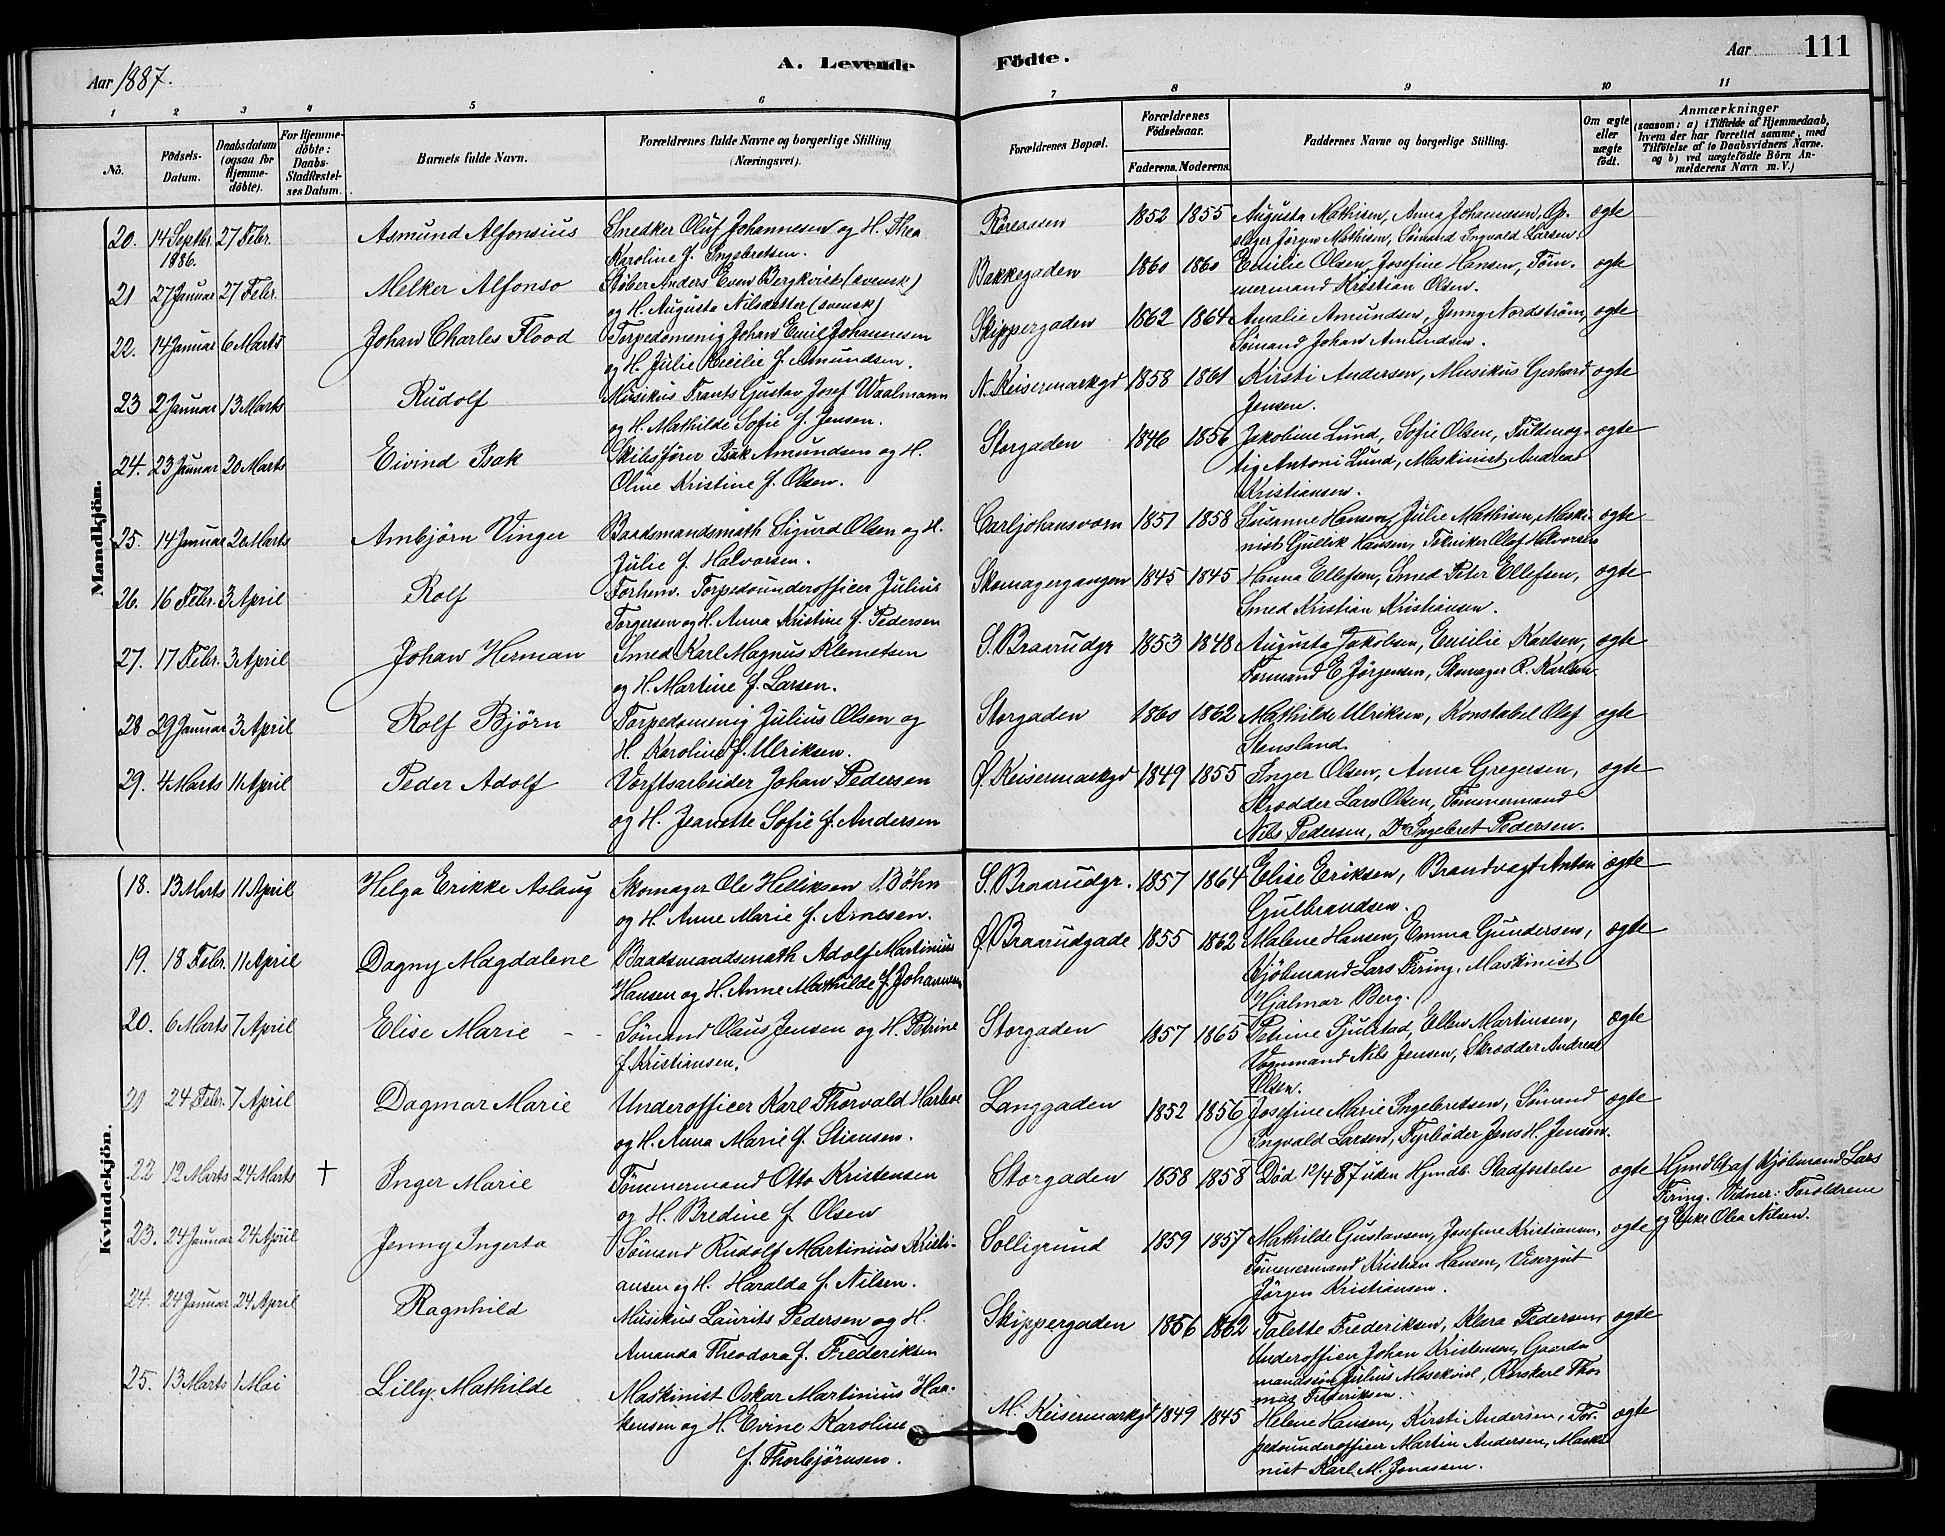 Aar 1887.
A. Levende Födte.
Aar
111
1 2 3 4 5 6 7 8 9 10 11
No.
Födsels-Datum.
Daabsdatum (ogsaa for Hjemme-döbte).
For Hjemme-döbte: Daabs-Stadfæstel-ses Datum.
Barnets fulde Navn.
Forældrenes fulde Navne og borgerlige Stilling (Næringsvei).
Forældrenes Bopæl.
Forældrenes Födselsaar.
Faderens. Moderens.
Faddernes Navne og borgerlige Stilling.
Om ægte eller uægte födt.
Anmærkninger
(saasom: a) i Tilfælde af Hjemmedaab, hvem der har forrettet samme, med Tilföielse af to Daabsvidners Navne. og b) ved uægtefödte Börn An-melderens Navn m. V.)
Mandkjön.
20. 14 Septbr. 1886. 27 Febr. Asmund Alfonsius Snedker Oluf Johannesen og H. Thea
Karoline f. Ingebretsen. Röreaasen 1852 1855 Augusta Mathisen, Anna Johannesen, Op-
slager Jörgen Mathisen, Sömand Ingvald Larsen. ægte
21 27 Januar 27 Febr. Melker Alfonso Stöber Anders Even Bergkvist (svensk)
og H. Augusta Nilsdatter (svensk) Bakkegaden 1860 1860 Emilie Olsen, Josefine Hansen, Töm-
mermand Kristian Olsen. ægte
22. 14 Januar 6 Marts Johan Charles Flood Torpedomenig Johan Emil Johannesen
og H. Julie Cecilie f. Amundsen. Skippergaden 1862 1864 Amalie Amundsen, Jenny Nordström,
Sömand Johan Amundsen. ægte
23 2 Januar 13 Marts Rudolf Musikus Frants Gustav Josef Waalmann
og H. Mathilde Sofie f. Jensen. N. Keisermarkgd 1858 1861 Kirsti Andersen, Musikus Gerhard
Jensen. ægte
24. 23 Januar 20 Marts Eivind Isak Skibsförer Isak Amundsen og H.
Oline Kristine f. Olsen. Storgaden 1846 1856 Jakobine Lund, Sofie Olsen, Fuldmæg-
tig Antoni Lund, Maskinist Andreas
Kristiansen. ægte
25. 14 Januar 20 Marts Ambjörn Vinger Baadsmandsmath Sigurd Olsen og H.
Julie f. Halvorsen. Carljohansværn 1851 1858 Susanne Hansen, Julie Mathisen, Maski-
nist Gullik Hansen, Tekniker Olof Halvorsen ægte
26. 16 Febr. 3 April Rolf Forhenv. Torpedounderofficer Julius
Torgersen og H. Anna Kristine f. Pedersen Skomagergangen 1845 1845 Hanna Ellefsen, Smed Peter Ellefsen,
Smed Kristian Kristiansen. ægte
27. 17 Febr. 3 April Johan Herman Smed Karl Magnus Klemetsen
og H. Martine f. Larsen. S. Braarudgr 1853 1848 Augusta Jakobsen, Emilie Karlsen,
Formand E Jörgensen, Skomager R. Karlsen. ægte
28 29 Januar 3 April Rolf Björn Torpedomenig Julius Olsen og
H. Karoline f. Ulriksen. Storgaden 1860 1862 Mathilde Ulriksen, Konstabel Olaf
Stensland. ægte
29. 4 Marts 11 April Peder Adolf Værftsarbeider Johan Pedersen
og H. Jeanette Sofie f. Andersen Ö. Keisermarkgd 1849 1855 Inger Olsen, Anna Gregersen,
Skrædder Lars Olsen, Tömmermand
Nils Pedersen, Do Ingebret Pedersen. ægte
Kvindekjön.
18. 13 Marts 11 April Helga Erikke Aslaug Skomager Ole Helliksen Böhn
og H. Anne Marie f. Arnesen. S. Braarudgr. 1857 1864 Elise Eriksen, Brandvagt Anton
Gulbrandsen. ægte
19. 18 Febr. 11 April Dagny Magdalene Baadsmandsmath Adolf Martinius
Hansen og H. Anne Mathilde f. Johannesen Ö. Braarudgade 1855 1862 Malene Hansen, Emma Gundersen,
Kjöbmand Lars Firing, Maskinist
Hjalmar Berg. ægte
20. 6 Marts 7 April Elise Marie Sömand Olaus Jensen og H. Petrine
f. Kristiansen. Storgaden 1857 1865 Petrine Gulstad, Ellen Martinsen,
Vognmand Nils Jensen, Skrædder Andreas
Olsen. ægte
21 24 Febr. 7 April Dagmar Marie Underofficer Karl Thorvald Harboe
og H. Anna Marie f. Stiansen. Langgaden 1852 1856 Josefine Marie Ingebretsen, Sömand
Ingvald Larsen, Fyrböder Jens H. Jensen. ægte
22 12 Marts 24 Marts † Inger Marie Tömmermand Otto Kristensen
og H. Bredine f. Olsen Storgaden 1858 1858 Död 12/4 87 uden Hjmdb. Stadfæstelse ægte Hjmdbt af Kjöbmand Lars
Firing. Vidner: Forældrene
og Enke Olea Nilsen.
23. 24 Januar 24 April Jenny Ingerta Sömand Rudolf Martinius Kristi-
ansen og H. Haralda f. Nilsen. Solligrund 1859 1857 Mathilde Gustavsen, Josefine Kristiansen,
Tömmermand Kristian Hansen, Visergut
Jörgen Kristiansen. ægte
24. 24 Januar 24 April Ragnhild Musikus Laurits Pedersen og H.
Amanda Theodora f. Frederiksen Skippergaden 1856 1862 Talette Frederiksen, Klara Pedersen,
Underofficer Johan Kristensen, Gaard-
mandssön Julius Mosekvist, Thor-
mas Frederiksen. ægte
25. 13 Marts 1 Mai Lilly Mathilde Maskinist Oskar Martinius Haa-
kensen og H. Evine Karoline
f. Thorbjörnsen. M. Keisermarkgd 1849 1845 Helene Hansen, Kirsti Andersen, Tor-
pedounderofficer Martin Andersen, Maski-
nist Karl M. Jonassen. ægte